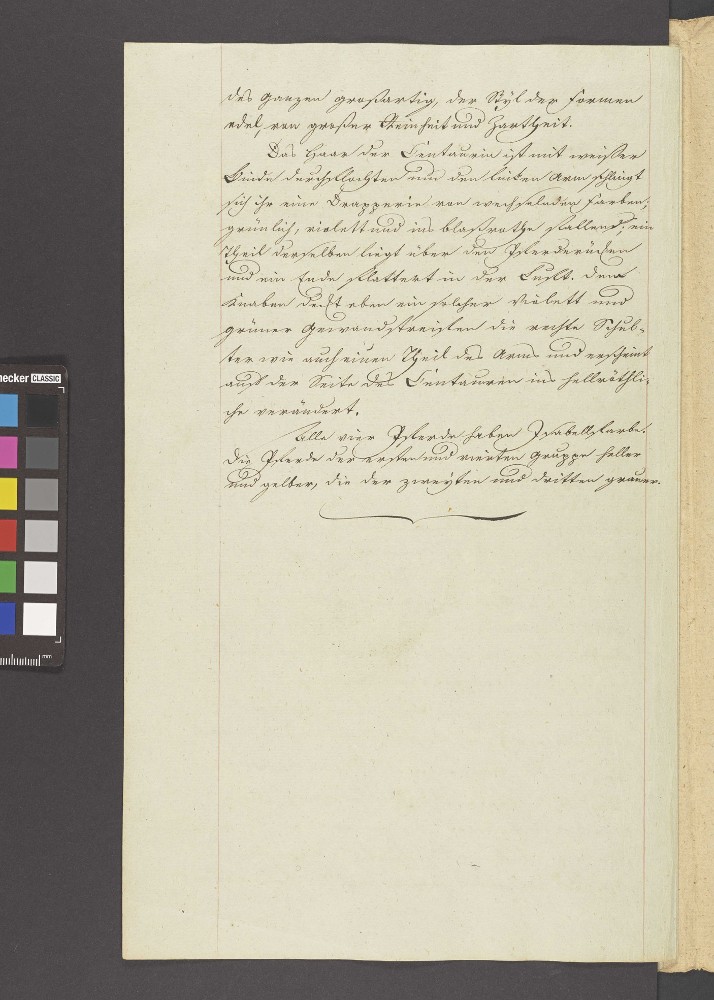 des Ganzen großartig, der Styl der Formen
edel, von großer Reinheit und Zartheit.
Das Haar der Centaurin ist mit weisser
Binde durchflochten um den linken Arm schlingt
sich ihr eine Drapperie von wechselnden Farben,
grünlich, violett und ins blaßrothe fallend; ein
Theil derselben liegt über den Pferderücken
und ein Ende flattert in der Luft. dem
Knaben deckt eben ein solcher violett und
grüner Gewandstreifen die rechte Schul-
ter wie auch einen Theil des Arms und erscheint
auf der Seite des Centauren ins hellröthli-
che verändert.
Alle vier Pferde haben Isabellfarbe.
die Pferde der ersten und vierten Gruppe heller
und gelber, die der zweyten und dritten grauer.
necker CLASSIC
mm